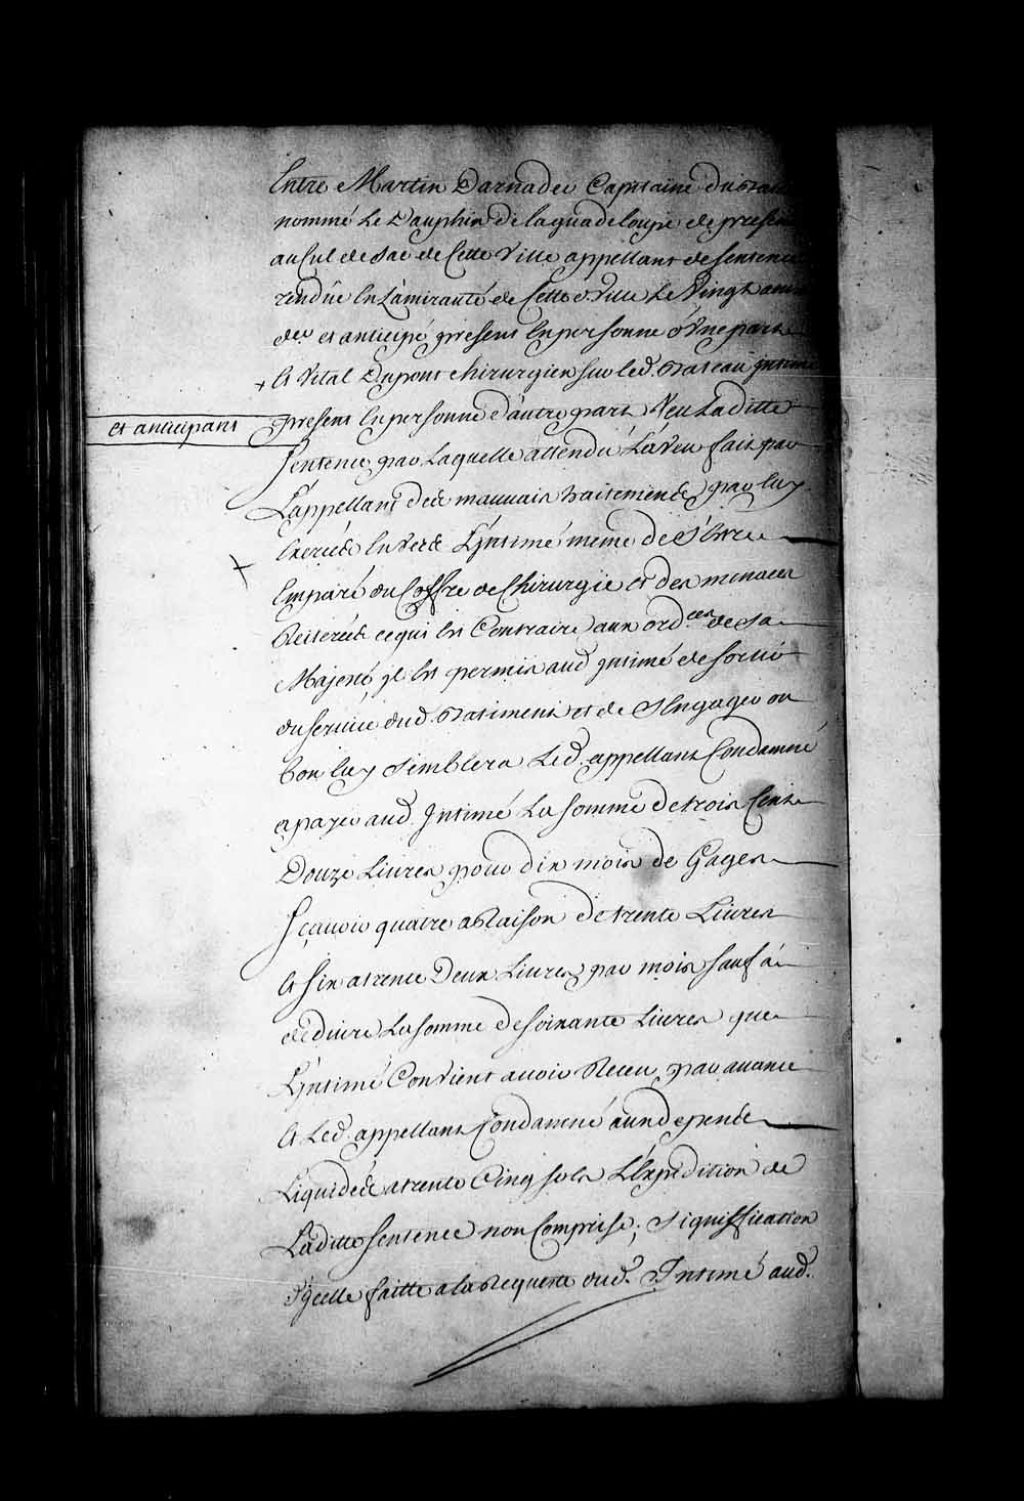 Entre Martin Darnade Capitaine du
nommé Le Dauphin de la guadeloupe de present
au Cul de Sac de Cette Ville appellant de Sentence
rendüe En L'amirauté de Cette d. Ville Le Vingt
der et anticipé present En personne d'Vne part
Et Vital Dupont Chirurgien sur led. Bateau Intimé
et anticipant
present En personne d'autre part Veu Laditte
Sentence par Laquelle attendu L'aveu fait par
L'appellant des mauvais traitements par luy
Exercés Envers L'Intimé même de S'être
Emparé du Coffre de Chirurgie et des menaces
Reiterées ce qui Est Contraire aux ord.ces de Sa
Majesté Il Est permis aud. Intimé de Sortir
du Service dud. Batiment et de S'Engager ou
bon luy Semblera Led. appellant Condamné
a payer aud. Intimé La Somme de trois Cents
Douze Livres pour dix mois de Gages
Sçavoir quatre a Raison de trente Livres
Et Six a trente Deux Livres par mois Sauf á
déduire La somme de Soixante Livres que
L'Intimé Convient avoir Receu par avance
Et Led. appellant Condamné aux depends
Liquidés a trente Cinq Sols L'Expedition de
Laditte Sentence non Comprise; Signiffication
d'ycelle faitte a la Requeste dud. Intimé aud.